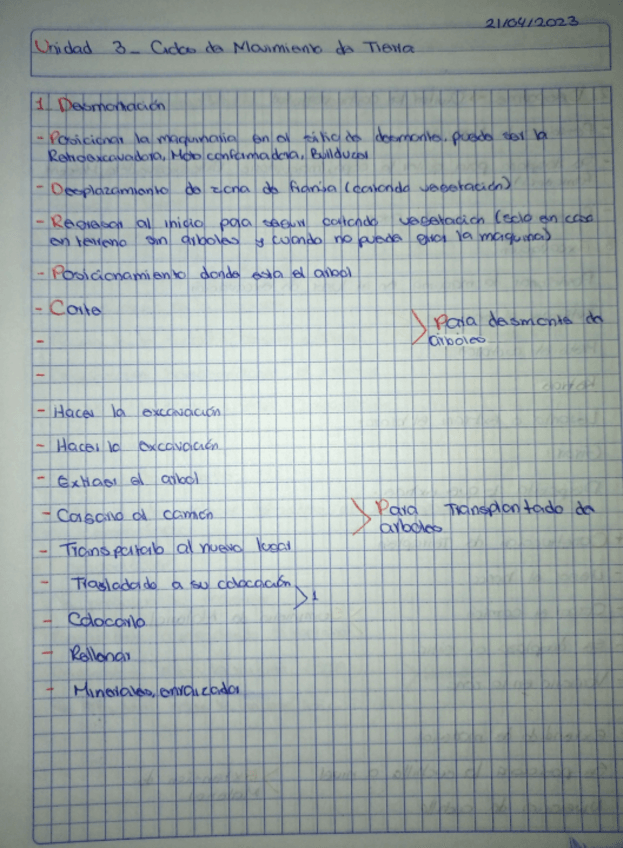 21/04/2023
Unidad 3- Ciclos de Movimiento de Tierra
1 Desmontación
- Posicionar la maquinaria en el sitio de desmonte, puede ser la
Retroexcavadora, Moto conformadora, Bulldozer
- Desplazamiento de zona de franja (cortando vegetación)
- Regresar al inicio para seguir cortando vegetación (solo en caso
en terreno sin arboles y cuando no pueda girar la maquina)
- Posicionamiento donde esta el arbol
- Corte
> Para desmonte de
arboles
-
-
- Hacer la excavación
- Hacer la excavación
- Extraer el arbol
- Cargarlo al camión
> Para Transplantado de
arboles
- Transportarlo al nuevo lugar
- Trasladado a su colocación
> 1
- Colocarlo
- Rellenar
- Minerales, enraizador